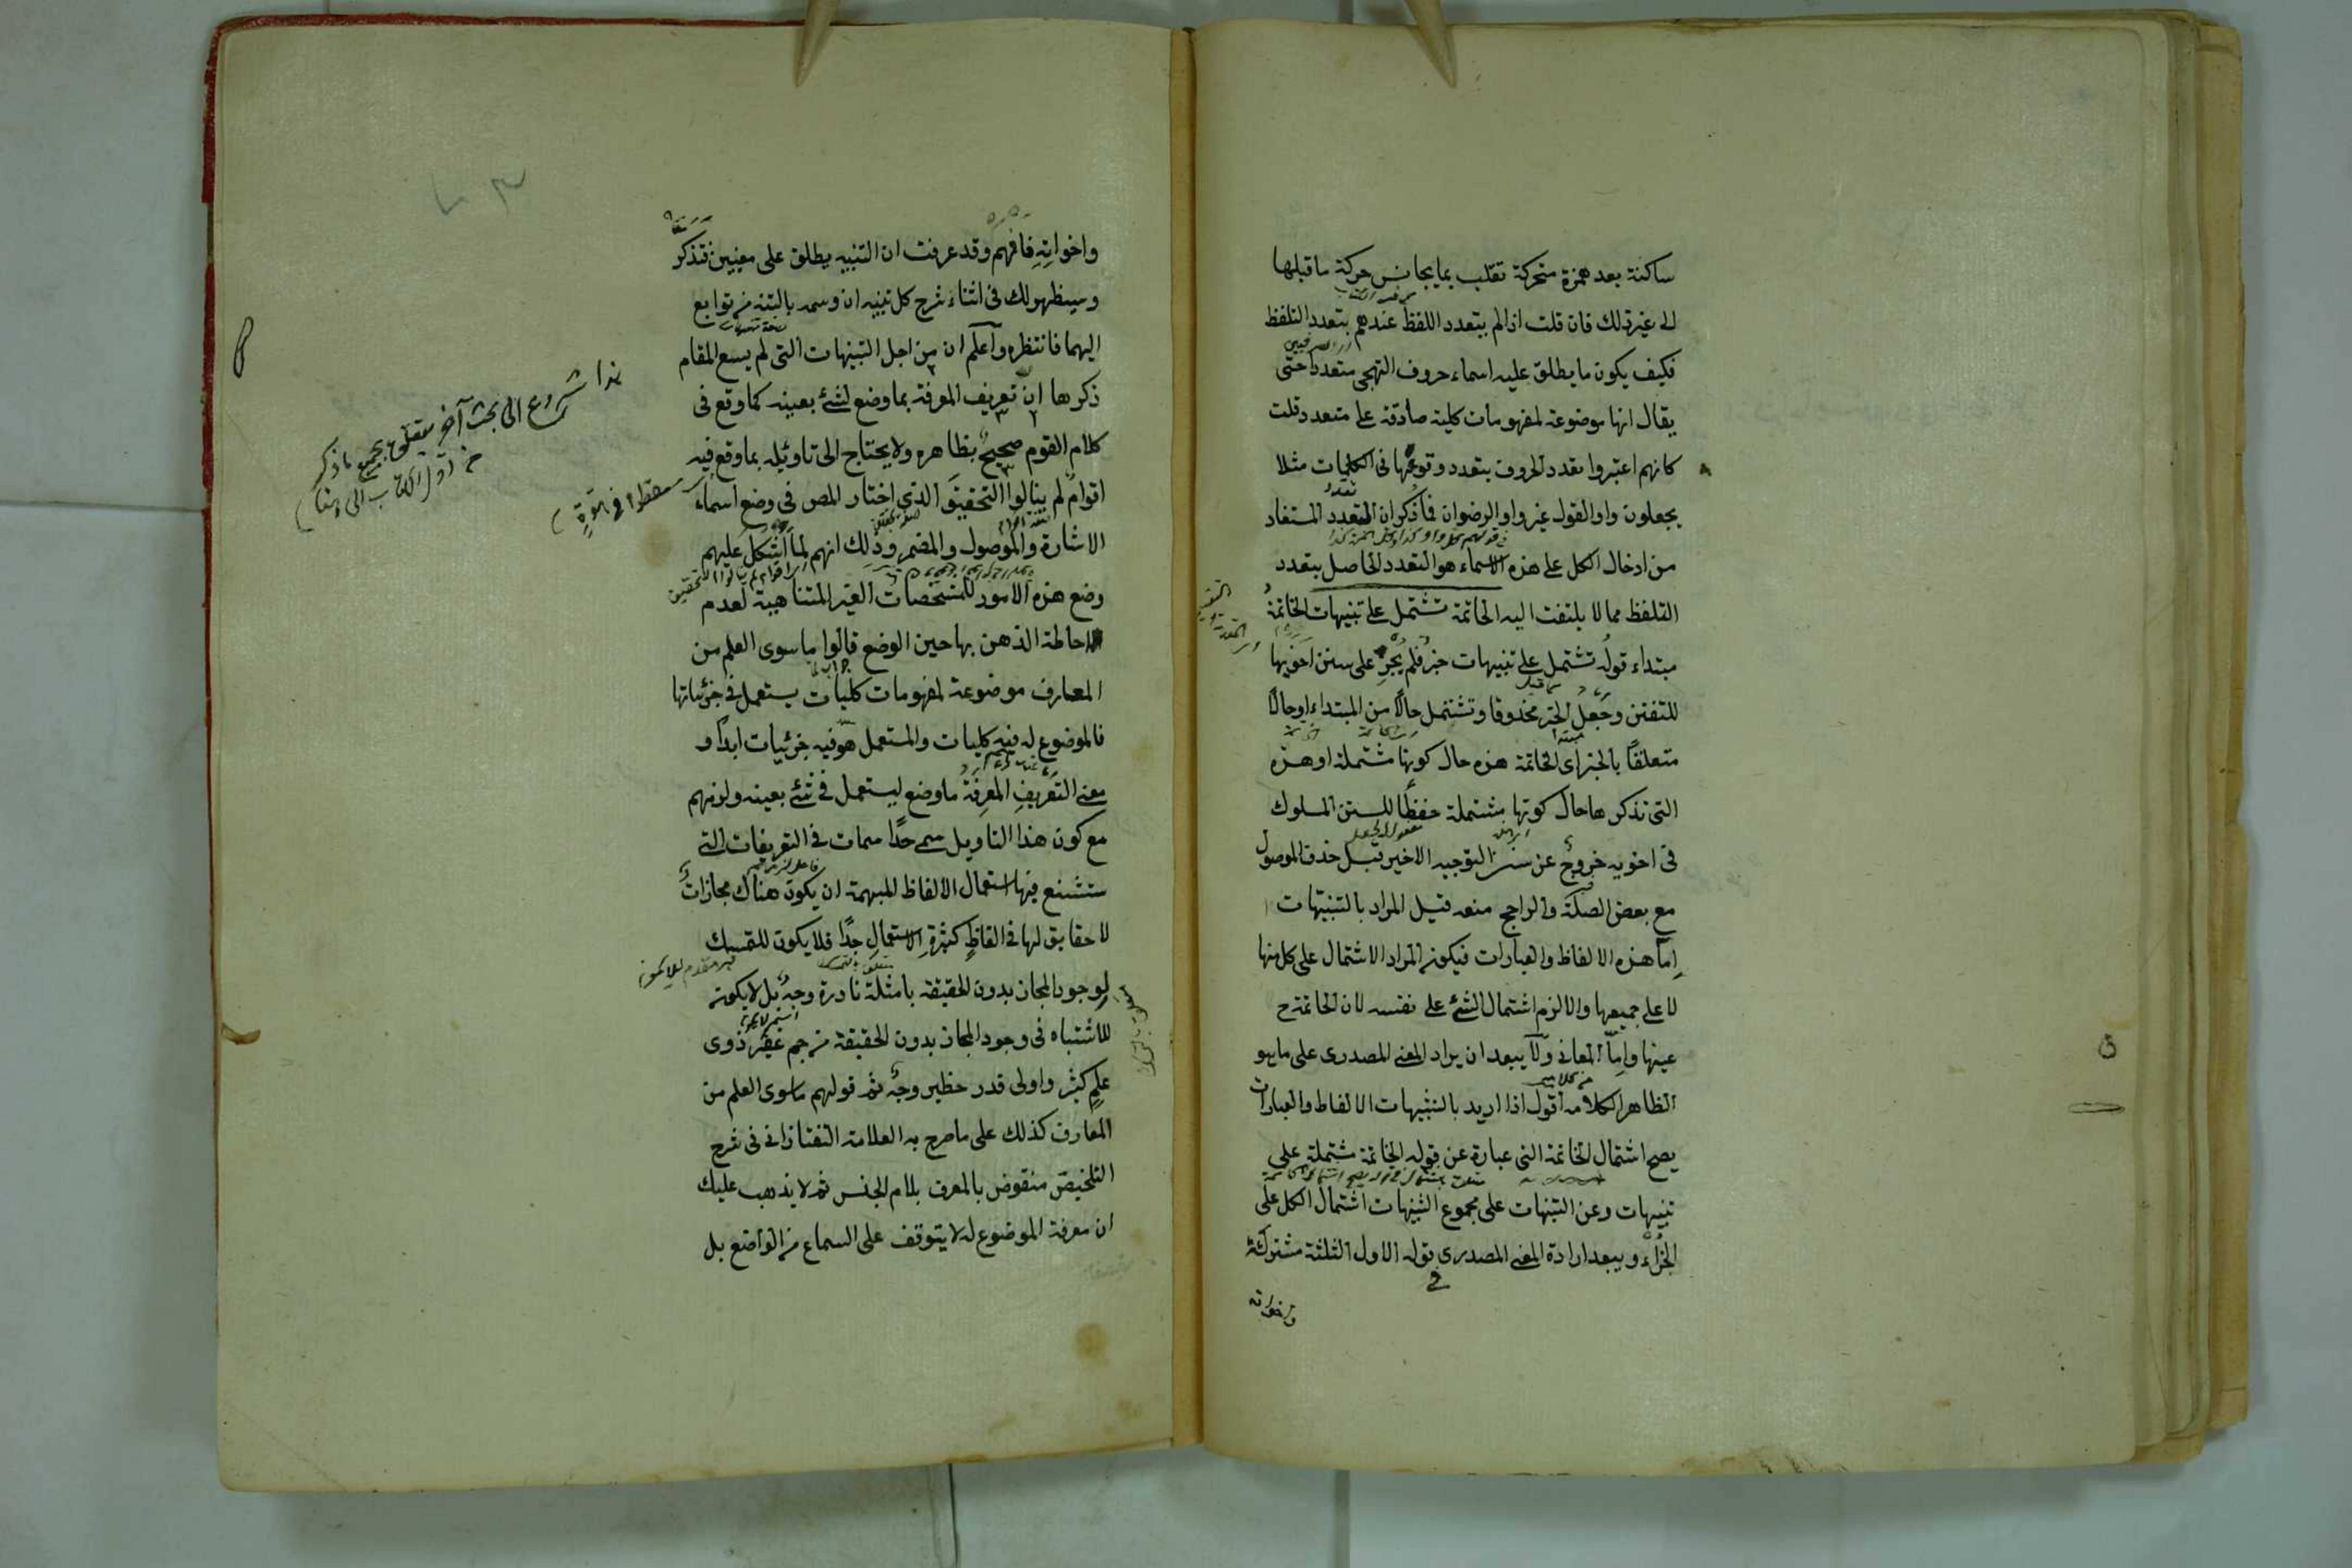 ساكنة بعد همزة متحركة تقلب بما يجانس حركة ما قبلها
الى غير ذلك فان قلت اذا لم يتعدد اللفظ عندهم بتعدد التلفظ
فكيف يكون ما يطلق عليه اسماء حروف التهجى متعددا حتى
يقال انها موضوعة لمفهومات كلية صادقة على متعدد قلت
كانهم اعتبروا تعدد الحروف بتعدد وقوعها فى الكلمات مثلا
يجعلون واو القول غير واو الرضوان فما ذكر ان المتعدد المستفاد
من ادخال الكل على هذه الاسماء هو التعدد الحاصل بتعدد
التلفظ مما لا يلتفت اليه الخاتمة تشتمل على تنبيهات الخاتمة
مبتداء قوله تشتمل على تنبيهات خبر فلم يجر على سنن اخويها
للتفنن وجعل الخبر محذوفا وتشتمل حالا من المبتداء او حالا
متعلقا بالخبر اى الخاتمة هذه حال كونها مشتملة او هذه
التى نذكرها حال كونها مشتملة حفظا للسنن المسلوك
فى اخويه خروج عن سنن التوجيه الاخير قبل حذف الموصول
مع بعض الصلة والراجح منعه قيل المراد بالتنبيهات
اما هذه الالفاظ والعبارات فيكون المراد الاشتمال على كل منها
لا على جميعها والا لزم اشتمال الشئ على نفسه لان الخاتمة ح
عينها واما المعانى ولا يبعد ان يراد المعنى المصدرى على ما هو
الظاهر لكلامه اقول اذا اريد بالتنبيهات الالفاظ والعبارات
يصح اشتمال الخاتمة التى عبارة عن قوله الخاتمة مشتملة على
تنبيهات وعن التنبيهات على مجموع التنبيهات اشتمال الكل على
الجزء ويبعد ارادة المعنى المصدرى قوله الاول الثلثة مشتركة
فى
واخواته
واخواته فافهم وقد عرفت ان التنبيه يطلق على معنيين فتذكر
وسيظهر لك فى اثناء شرح كل تنبيه ان وسمه بالتنبيه من توابع
اليهما فانتظره واعلم ان من اجل التنبيهات التى لم يسع المقام
ذكرها ان تعريف المعرفة بما وضع لشئ بعينه كما وقع فى
كلام القوم صحيح بظاهره ولا يحتاج الى تاويله بما وقع فيه
اقوام لم ينالوا التحقيق الذى اختار المص فى وضع اسماء
الاشارة والموصول والمضمر وذلك انهم لما اشكل عليهم
وضع هذه الامور للمشخصات الغير المتناهية لعدم
احاطة الذهن بها حين الوضع قالوا ما سوى العلم من
المعارف موضوعة لمفهومات كليات يستعمل فى جزئياتها
فالموضوع له فيه كليات والمستعمل هو فيه جزئيات ابدا و
معنى التعريف المعرفة ما وضع ليستعمل فى شئ بعينه ولزمهم
مع كون هذا التاويل سمج جدا سمات فى التعريفات التى
ستشنع فيها استعمال الالفاظ المبهمة ان يكون هناك مجازات
لا حقايق لها فى الفاظ كثيرة الاستعمال جدا فلا يكون للتمسك
لوجود المجاز بدون الحقيقة بامثلة نادرة وجه بل لا يكون
للاشتباه فى وجود المجاز بدون الحقيقة من جم غفير ذوى
علم كثير واولى قدر خطير وجه ثم قولهم ما سوى العلم من
المعارف كذلك على ما صرح به العلامة التفتازانى فى شرح
التلخيص منقوض بالمعرف بلام الجنس ثم لا يذهب عليك
ان معرفة الموضوع له لا يتوقف على السماع من الواضع بل
هذا شروع الى بحث آخر متعلق بجميع ما ذكر
من اول الكتاب الى هنا